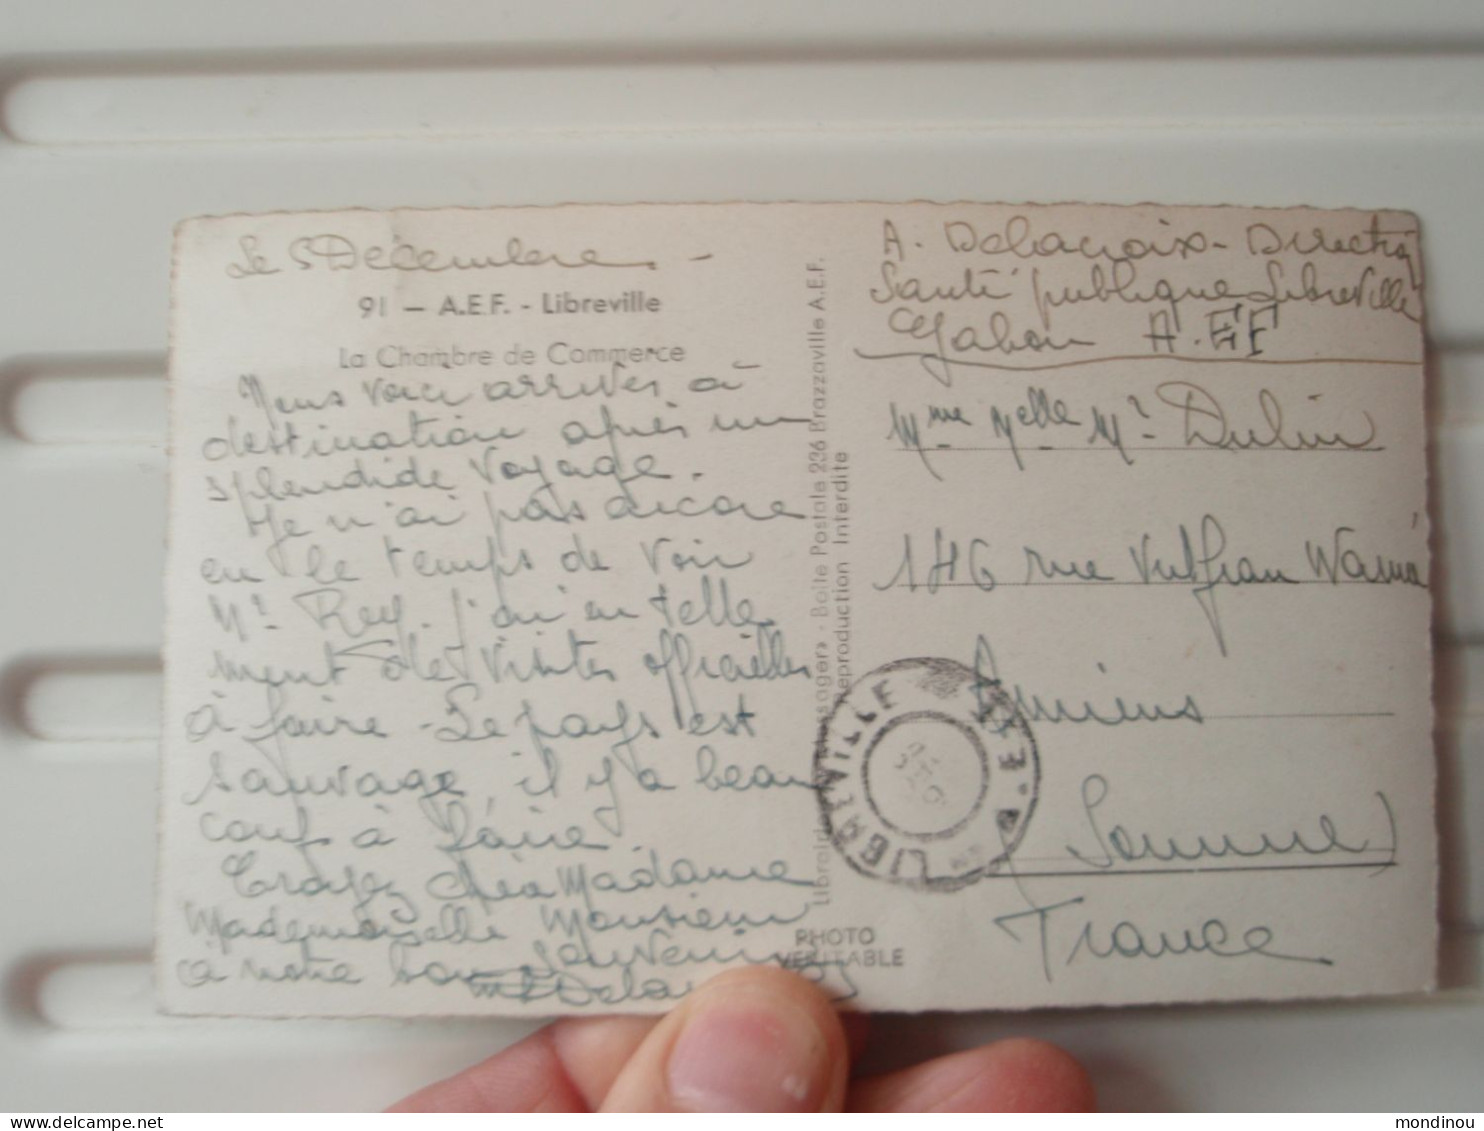 Le 5 Décembre -
91 — A.E.F. - Libreville
La Chambre de Commerce
Nous voici arrivés à
destination après un
splendide voyage.
Je n'ai pas encore
eu le temps de voir
Mr Rey. j'ai eu telle
ment de visites officielles
à faire - Le pays est
sauvage, il y a beau
coup à faire.
Croyez chère Madame
Mademoiselle Monsieur
à notre bon souvenir
Boîte Postale 236 Brazzaville A.E.F.
Reproduction Interdite
PHOTO
VERITABLE
A. Delacroix - Direction
Santé publique Libreville
Gabon A.EF
Mme Melle Mr Dulin
146 rue Vulfran Warmé
Amiens
Somme
France
LIBREVILLE A.E.F.
mondinou